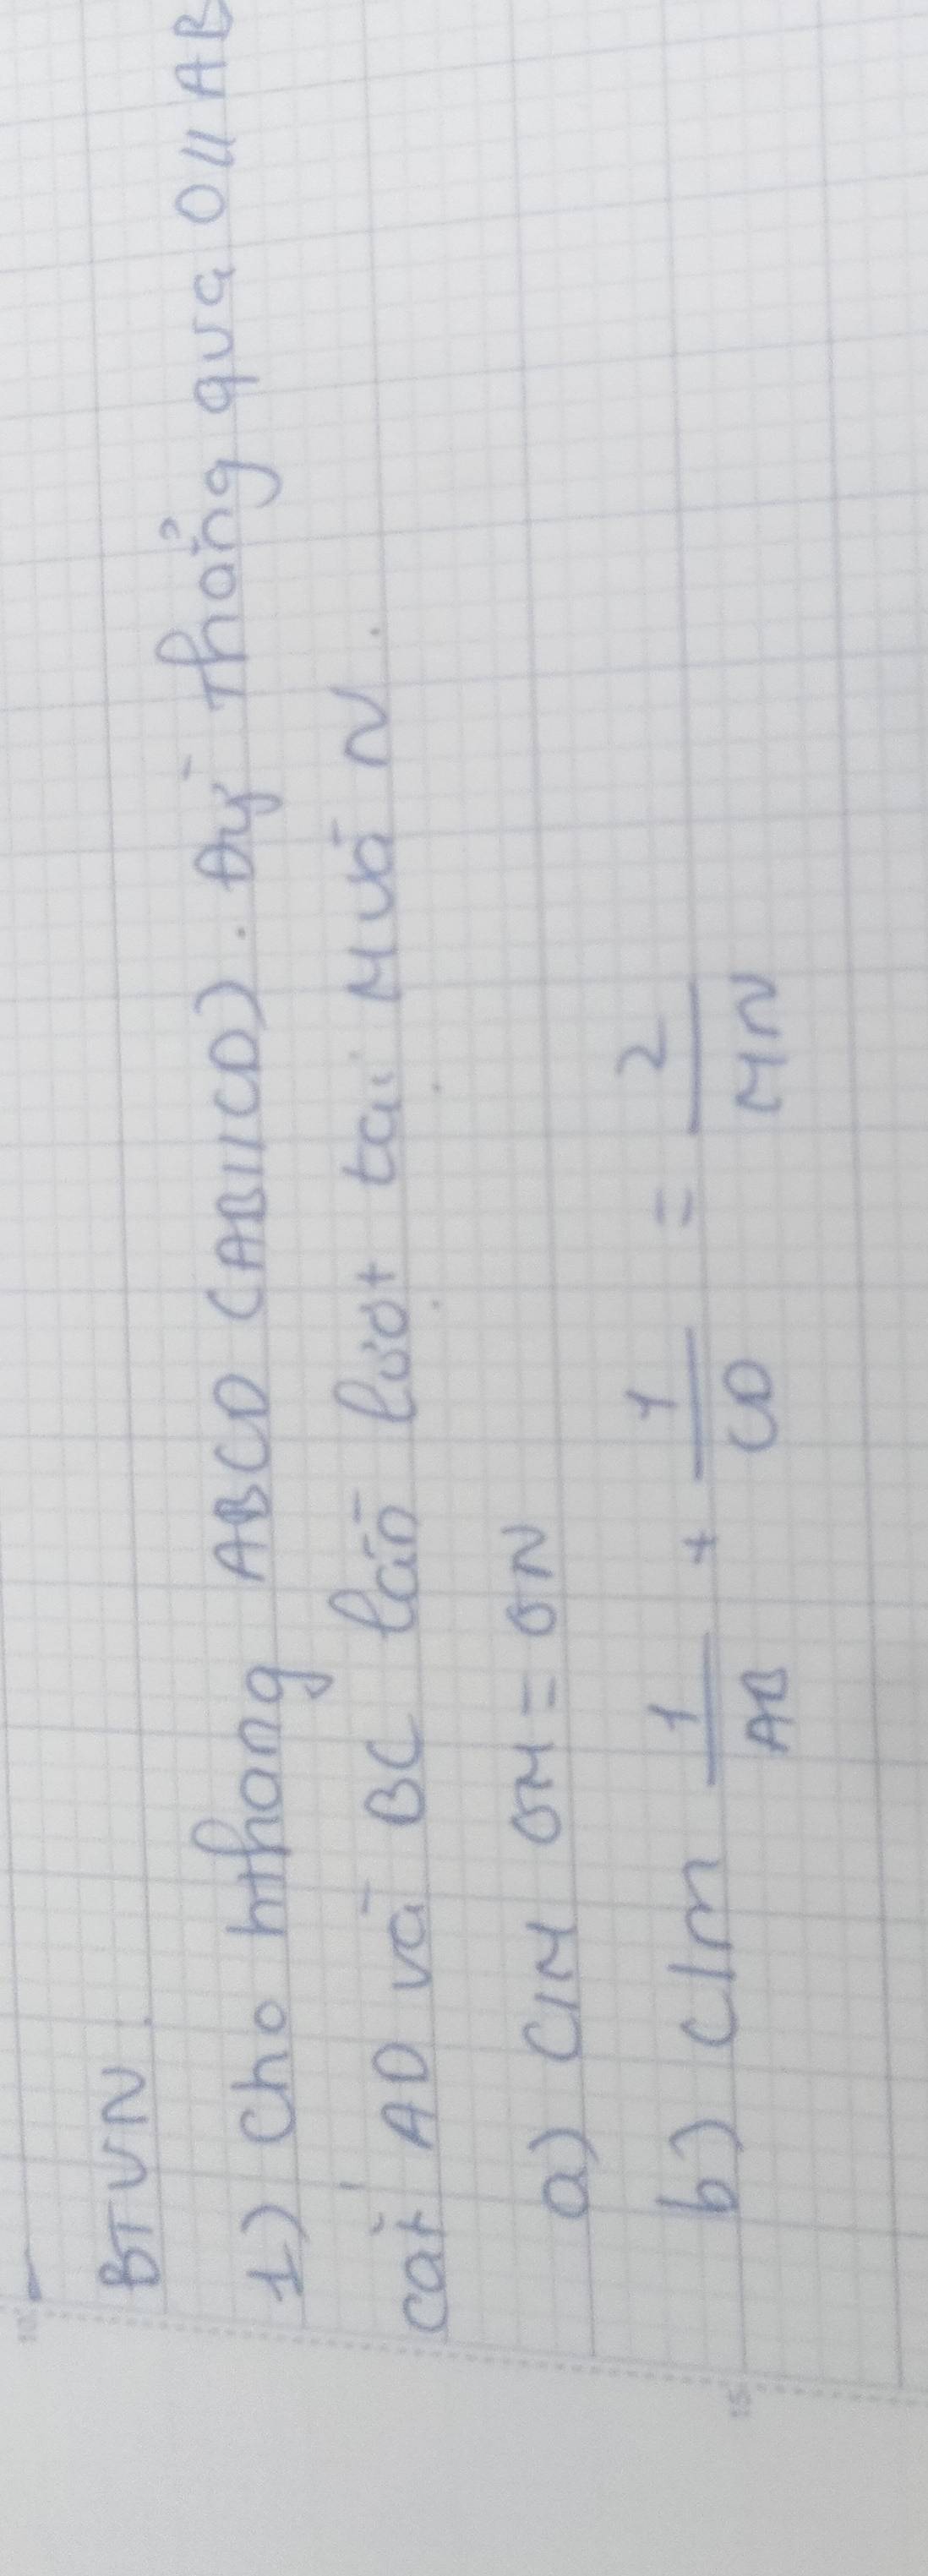 BTVN.
1) Cho hthang ABCD (AB//CD). Đg thẳng qua O // AB
cắt AD và BC lần lượt tại M và N.
a) C/M OM = ON
b) C/m 1/AB + 1/CD = 2/MN
10
15